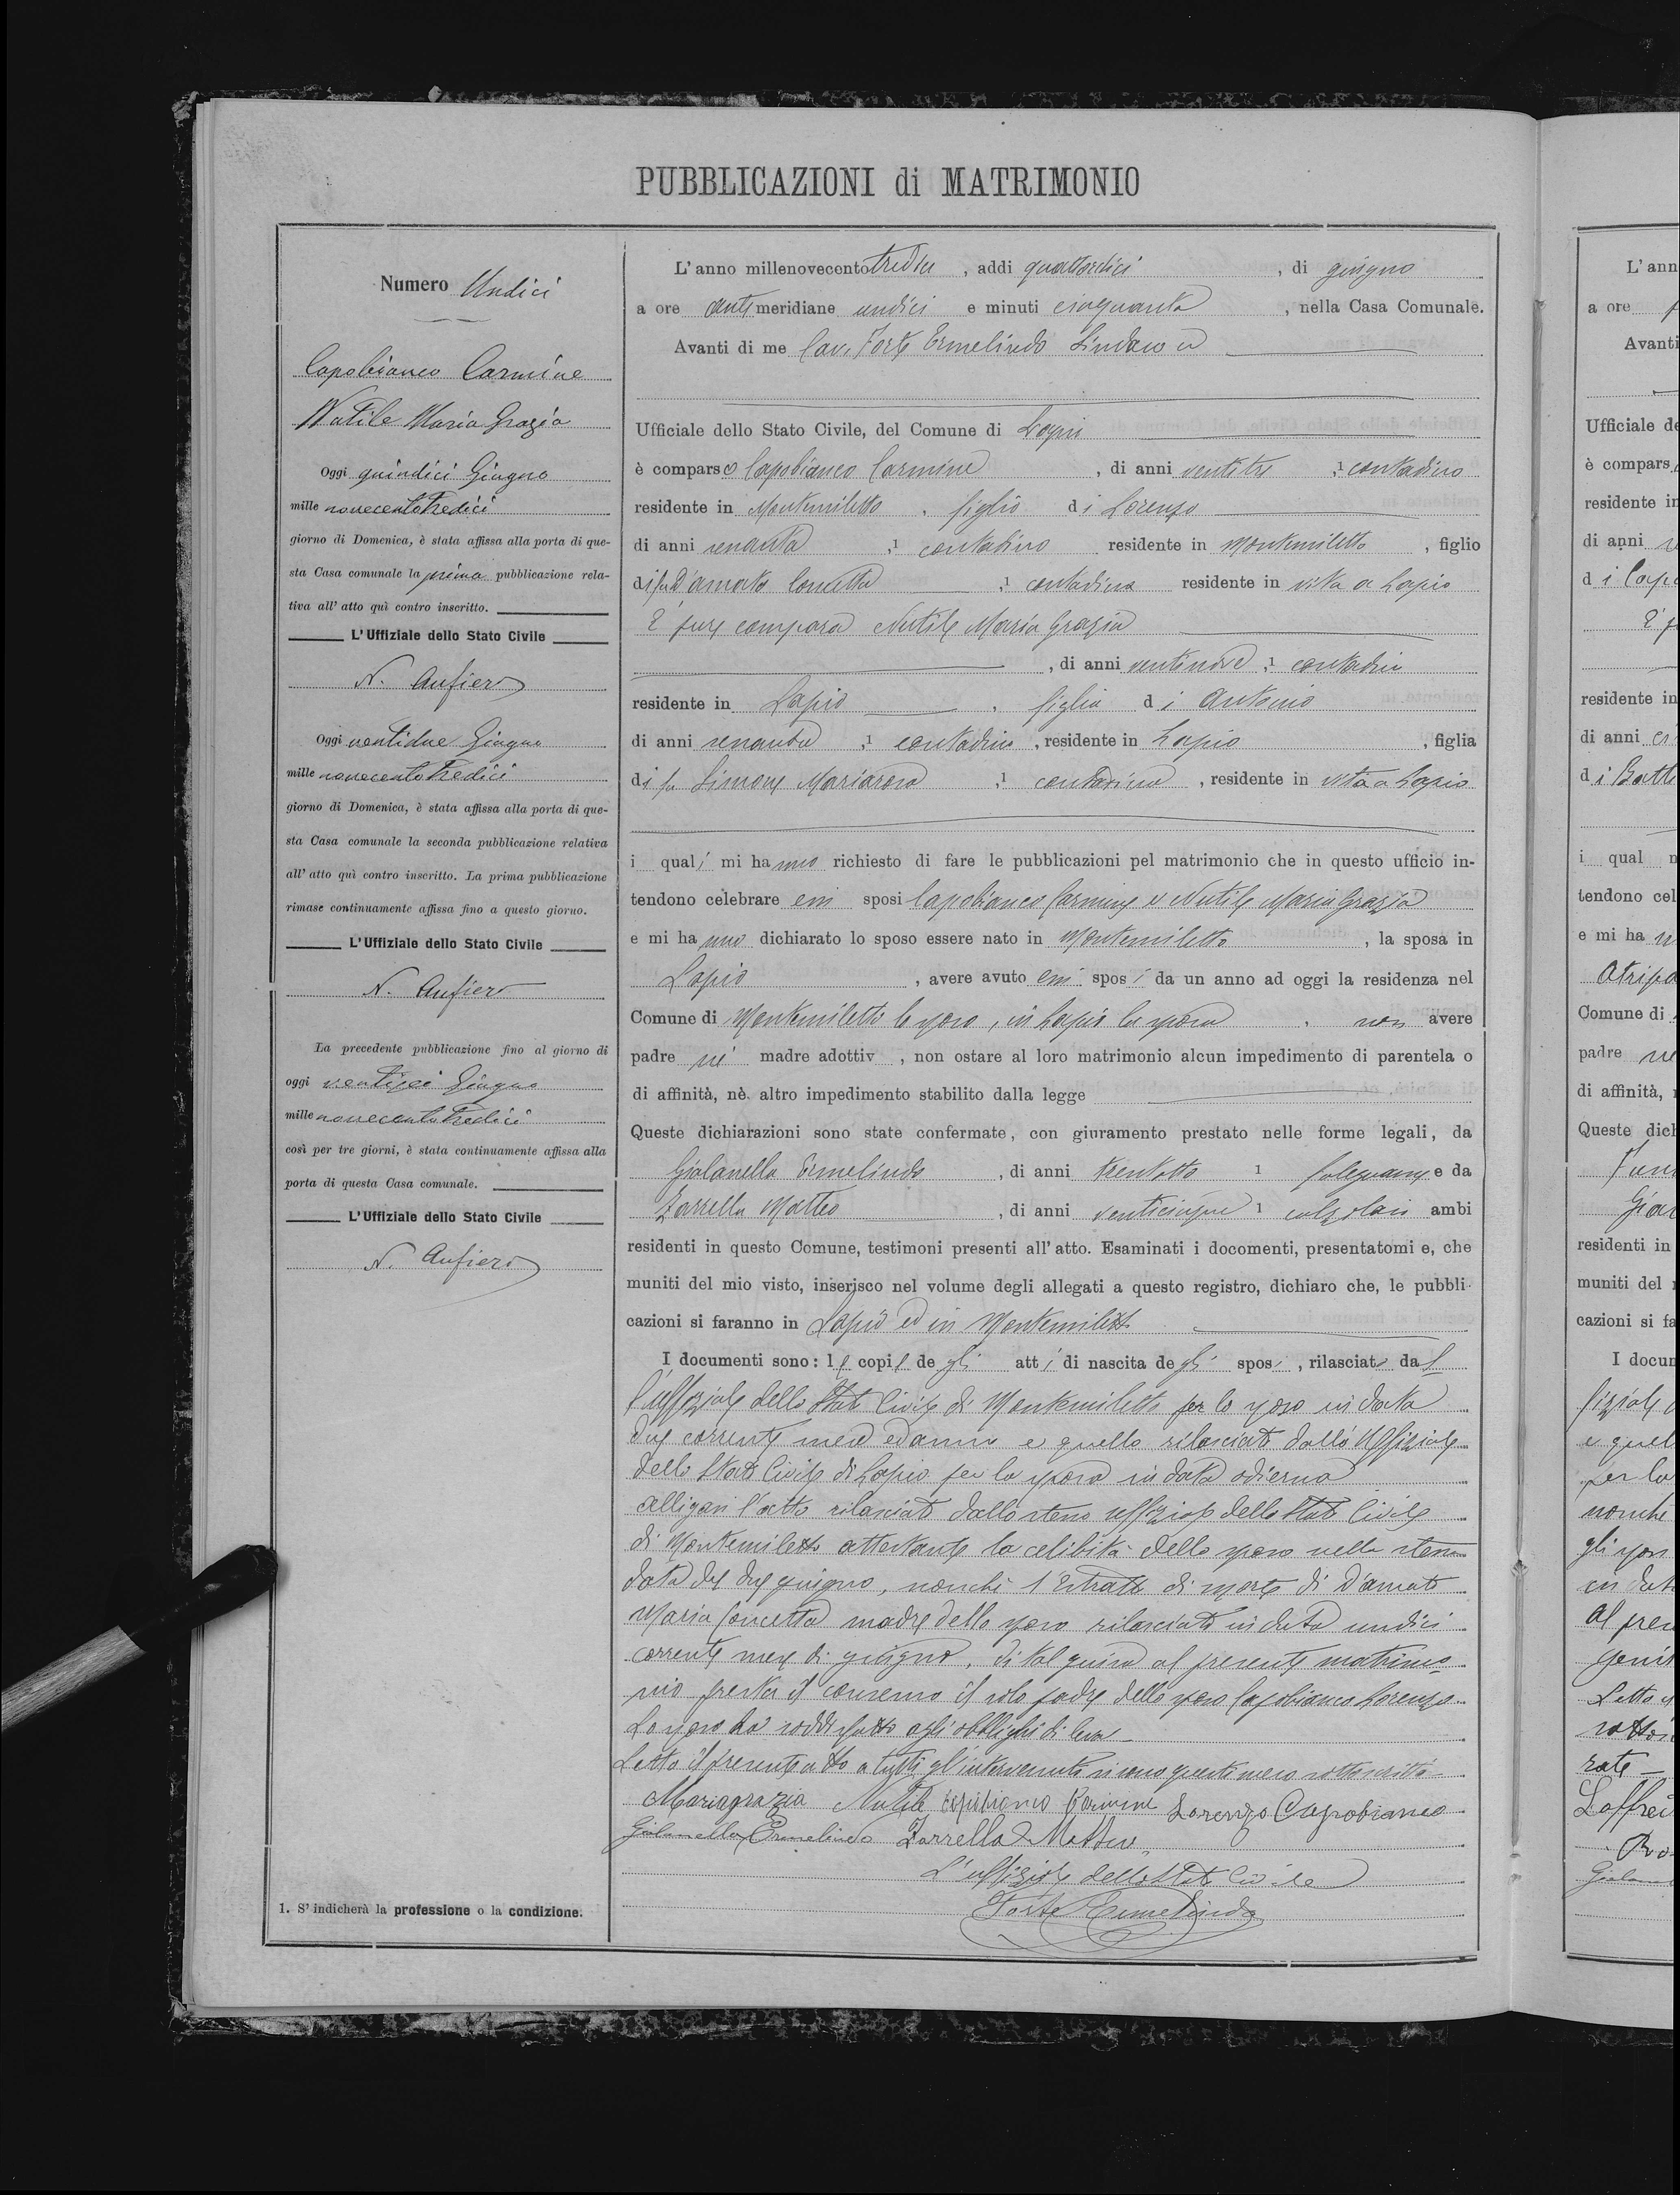 PUBBLICAZIONI di MATRIMONIO
Numero Undici
Capobianco Carmine
Nutile Maria Grazia
Oggi quindici Giugno
mille novecentotredici
giorno di Domenica, è stata affissa alla porta di que-
sta Casa comunale la prima pubblicazione rela-
tiva all' atto quì contro inscritto.
L'Uffiziale dello Stato Civile
N. Aufiero
Oggi ventidue Giugno
mille novecentotredici
giorno di Domenica, è stata affissa alla porta di que-
sta Casa comunale la seconda pubblicazione relativa
all' atto quì contro inscritto. La prima pubblicazione
rimase continuamente affissa fino a questo giorno.
L'Uffiziale dello Stato Civile
N. Aufiero
La precedente pubblicazione fino al giorno di
oggi ventisei Giugno
mille novecentotredici
così per tre giorni, è stata continuamente affissa alla
porta di questa Casa comunale.
L'Uffiziale dello Stato Civile
N. Aufiero
1. S' indicherà la professione o la condizione.
L'anno millenovecentotredici, addi quattordici, di giugno
a ore antimeridiane undici e minuti cinquanta, nella Casa Comunale.
Avanti di me Cav. Forte Ermelindo Sindaco ed
Ufficiale dello Stato Civile, del Comune di Lapio
è comparso Capobianco Carmine, di anni ventitre, 1 contadino
residente in Montemiletto, figlio di Lorenzo
di anni senanta, 1 contadino residente in Montemiletto, figlio
di fu D'amato Concetta, 1 contadina residente in vita a Lapio
È pure comparsa Nutile Maria Grazia
, di anni ventinove, 1 contadina
residente in Lapio, figlia di Antonio
di anni senanta, 1 contadino, residente in Lapio, figlia
di fu Simone Mariarosa, 1 contadina, residente in vita a Lapio
i quali mi hanno richiesto di fare le pubblicazioni pel matrimonio che in questo ufficio in-
tendono celebrare essi sposi Capobianco Carmine e Nutile Maria Grazia
e mi hanno dichiarato lo sposo essere nato in Montemiletto, la sposa in
Lapio, avere avuto essi sposi da un anno ad oggi la residenza nel
Comune di Montemiletto lo sposo, in Lapio la sposa, non avere
padre nè madre adottiv, non ostare al loro matrimonio alcun impedimento di parentela o
di affinità, nè altro impedimento stabilito dalla legge
Queste dichiarazioni sono state confermate, con giuramento prestato nelle forme legali, da
Gialanella Ermelindo, di anni trentotto 1 falegname e da
Zarrella Matteo, di anni venticinque 1 calzolaio ambi
residenti in questo Comune, testimoni presenti all' atto. Esaminati i documenti, presentatomi e, che
muniti del mio visto, inserisco nel volume degli allegati a questo registro, dichiaro che, le pubbli-
cazioni si faranno in Lapio ed in Montemiletto
I documenti sono: le copie degli atti di nascita degli sposi, rilasciate dal
l'uffiziale dello Stato Civile di Montemiletto per lo sposo in data
due corrente mese ed anno e quello rilasciato dallo Uffiziale
dello Stato Civile di Lapio per la sposa in data odierna
alligasi l'atto rilasciato dallo stesso uffiziale dello Stato Civile
di Montemiletto attestante la celibità dello sposo nella stessa
data del due giugno, nonchè l'Estratto di morte di D'amato
Maria Concetta madre dello sposo rilasciato in data undici
corrente mese di giugno. Di tal guisa al presente matrimo
nio presta il consenso il solo padre dello sposo Capobianco Lorenzo
Lo sposo ha soddisfatto agli obblighi di leva
Letto il presente atto a tutti gl'intervenuti si sono questi meco sottoscritti
Mariagrazia Nutile Capobianco Carmine Lorenzo Capobianco
Gialanella Ermelindo Zarrella Matteo
L'uffiziale dello Stato Civile
Forte Ermelindo
L'ann
a ore
Avanti
Ufficiale de
è compars
residente in
di anni
di Capo
residente in
di anni
di Batt
i qual
tendono cel
e mi ha
Atripa
Comune di
padre
di affinità,
Queste dich
residenti in
muniti del
cazioni si fa
I docum
fiziale
e quel
per la
nonche
gli spos
in dat
Al pres
genit
Letto
sotto
rate